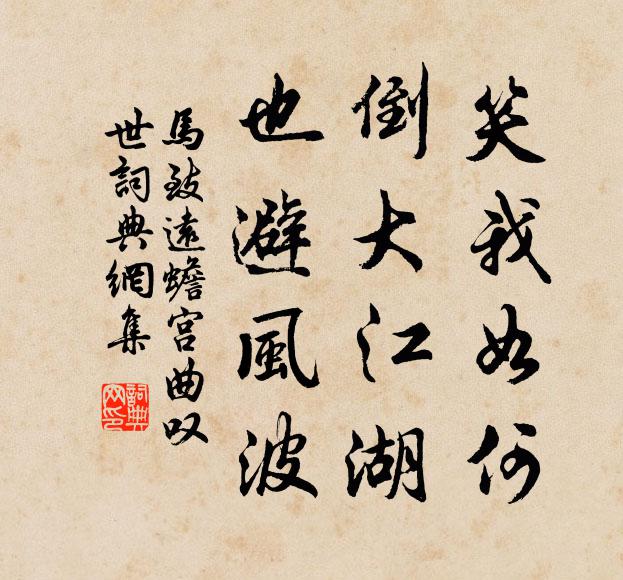 笑我如何
倒大江湖
也避風波
馬致遠蟾宮曲叹
世詞典網集
詞典
网印